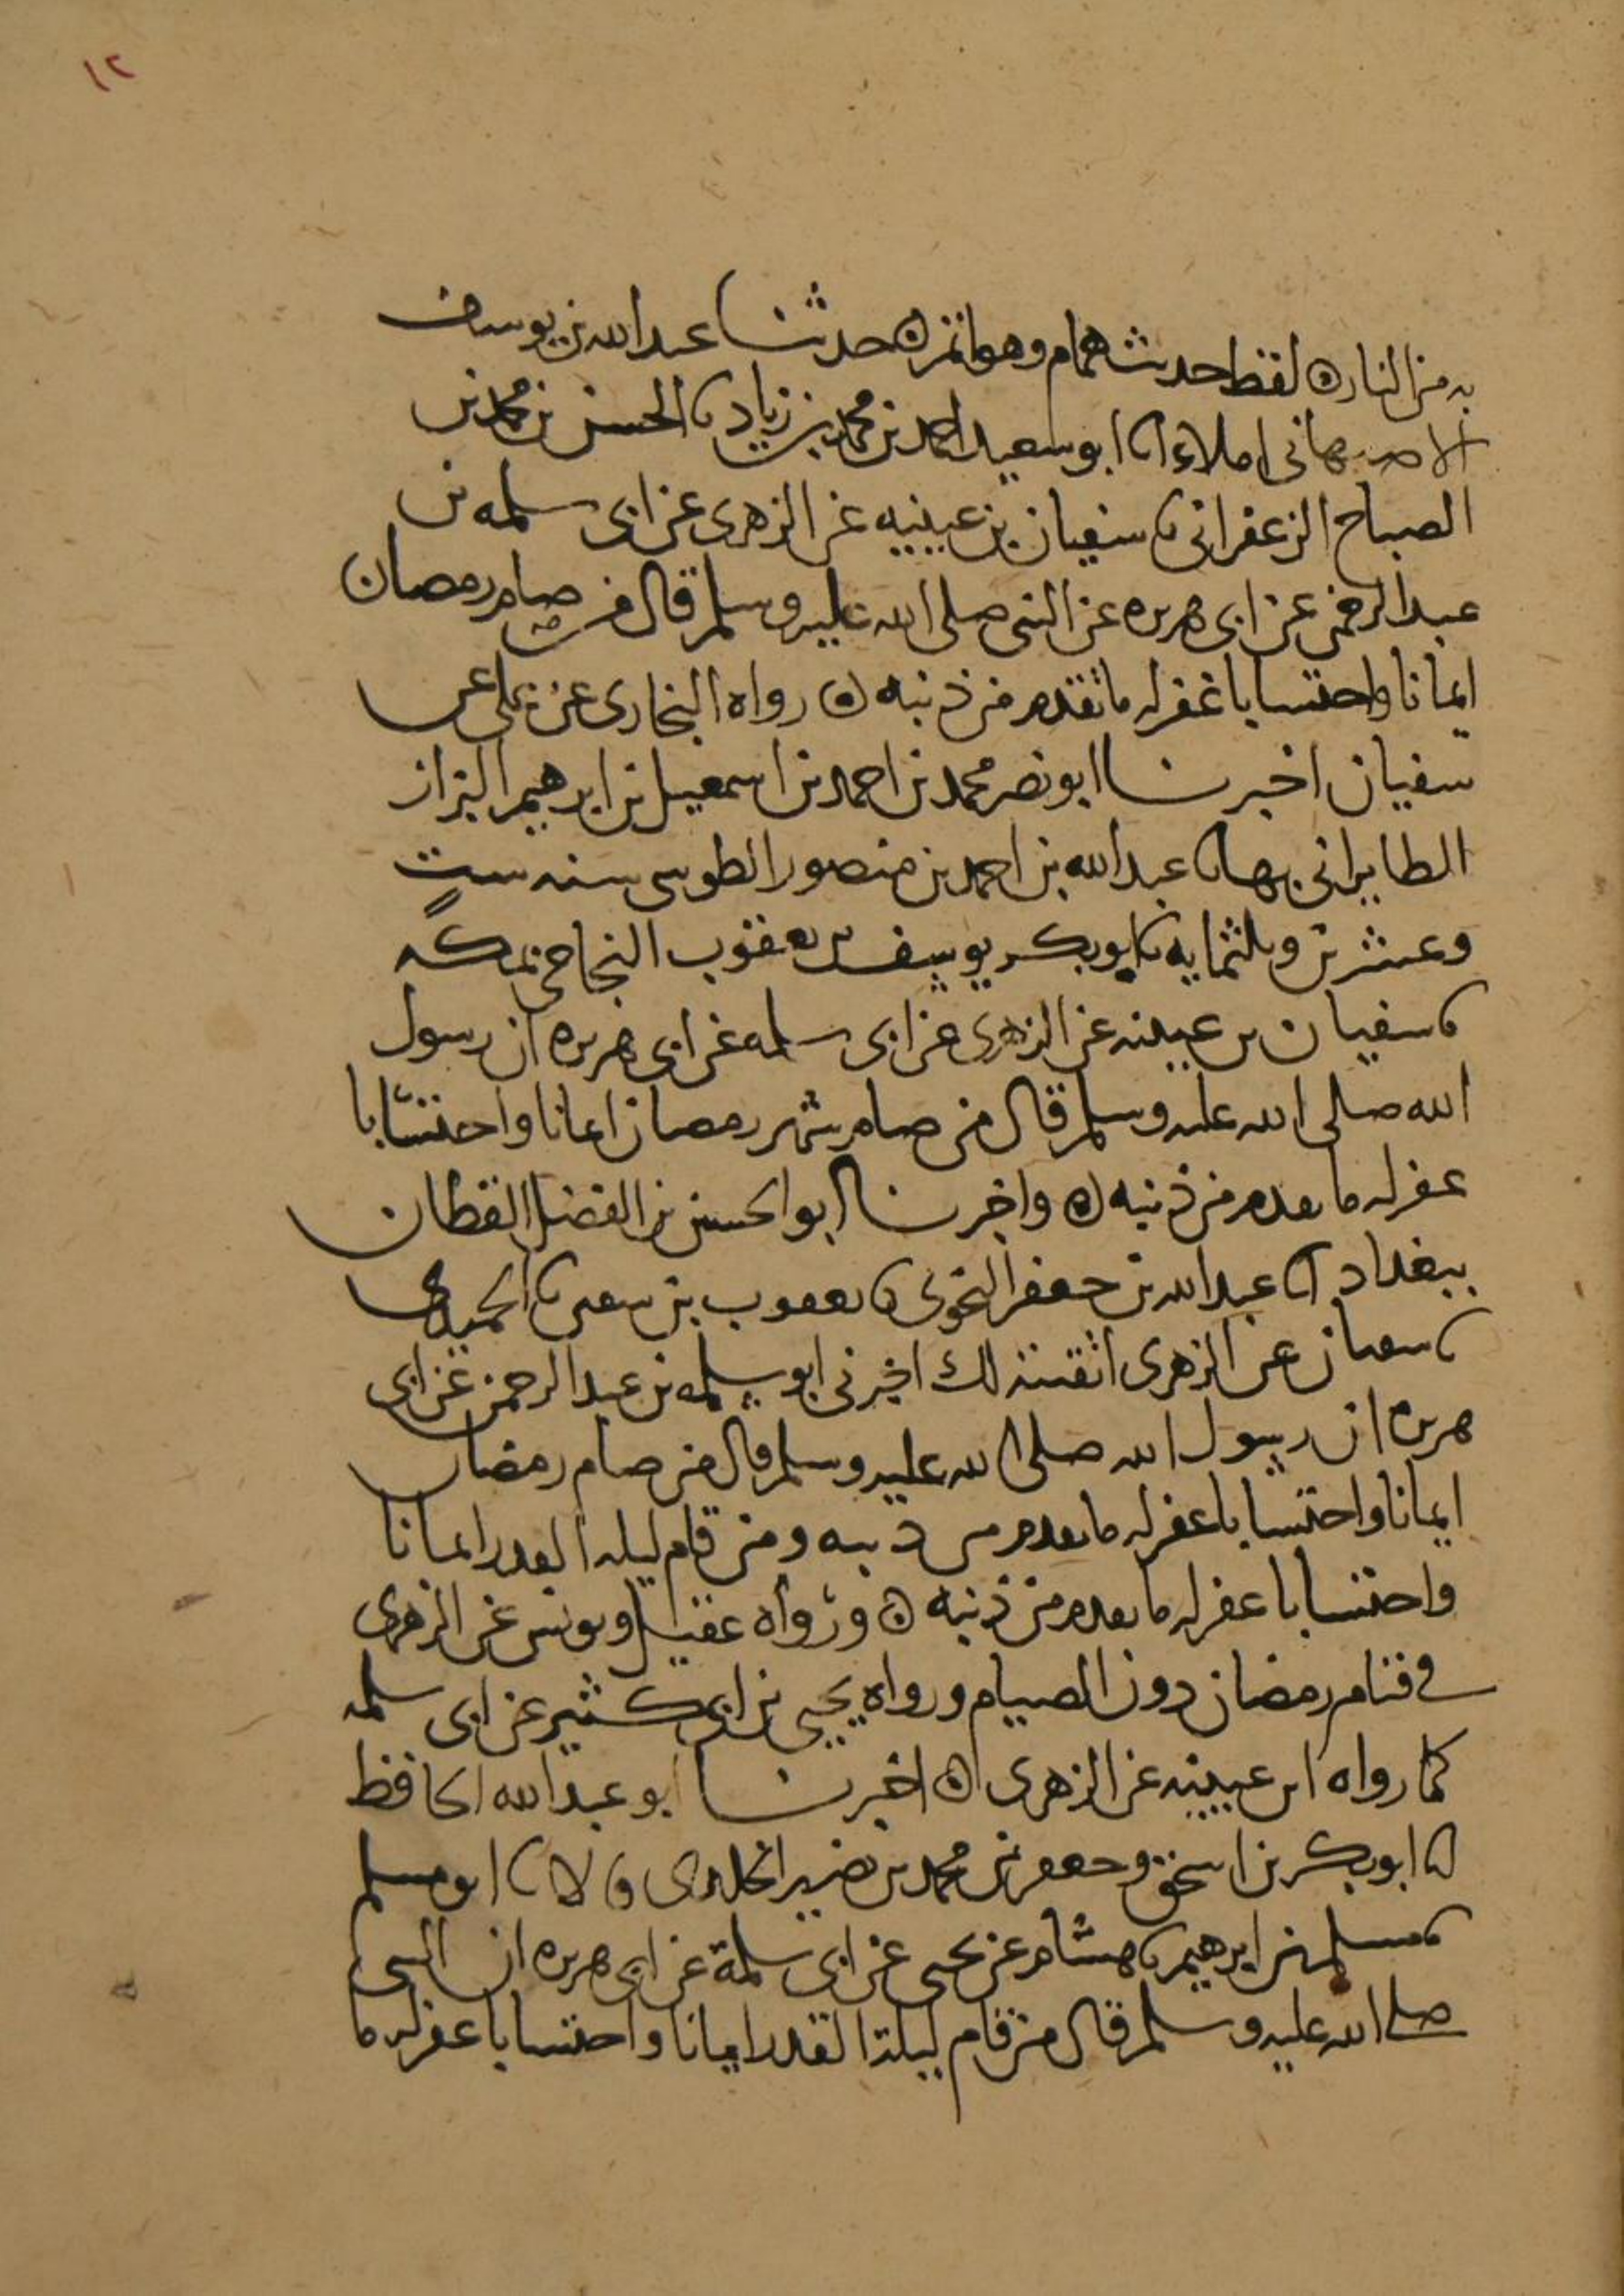 ١٢
به من النار ه لفظ حديث همام وهو اتم ه حدثنا عبد الله بن يوسف
الاصبهاني املاء انا ابو سعيد احمد بن محمد بن زياد نا الحسن بن محمد بن
الصباح الزعفراني نا سفيان بن عيينه عن الزهري عن ابي سلمه بن
عبد الرحمن عن ابي هريره عن النبي صلى الله عليه وسلم قال من صام رمضان
ايمانا واحتسابا غفر له ما تقدم من ذنبه ه رواه البخاري عن علي عن
سفيان اخبرنا ابو نصر محمد بن احمد بن اسمعيل بن ابرهيم البزاز
الطابراني بها نا عبد الله بن احمد بن منصور الطوسي سنه ست
وعشرين وثلثمايه نا ابو بكر يوسف بن يعقوب النجاحي بمكه
نا سفيان بن عيينه عن الزهري عن ابي سلمه عن ابي هريره ان رسول
الله صلى الله عليه وسلم قال من صام شهر رمضان ايمانا واحتسابا
غفر له ما تقدم من ذنبه ه واخبرنا ابو الحسين بن الفضل القطان
ببغداد انا عبد الله بن جعفر النحوي نا يعقوب بن سفين نا الحميدي
نا سفيان عن الزهري اتقنته لك اخبرني ابو سلمه بن عبد الرحمن عن ابي
هريره ان رسول الله صلى الله عليه وسلم قال من صام رمضان
ايمانا واحتسابا غفر له ما تقدم من ذنبه ومن قام ليله القدر ايمانا
واحتسابا غفر له ما تقدم من ذنبه ه ورواه عقيل ويونس عن الزهري
في قيام رمضان دون الصيام ورواه يحيى بن ابي كثير عن ابي سلمه
كما رواه ابن عيينه عن الزهري ه اخبرنا ابو عبد الله الحافظ
انا ابو بكر بن اسحق وجعفر بن محمد بن نصير الخلدي قالا نا ابو مسلم
نا مسلم بن ابرهيم نا هشام عن يحيى عن ابي سلمة عن ابي هريره ان النبي
صلى الله عليه وسلم قال من قام ليلة القدر ايمانا واحتسابا غفر له ما